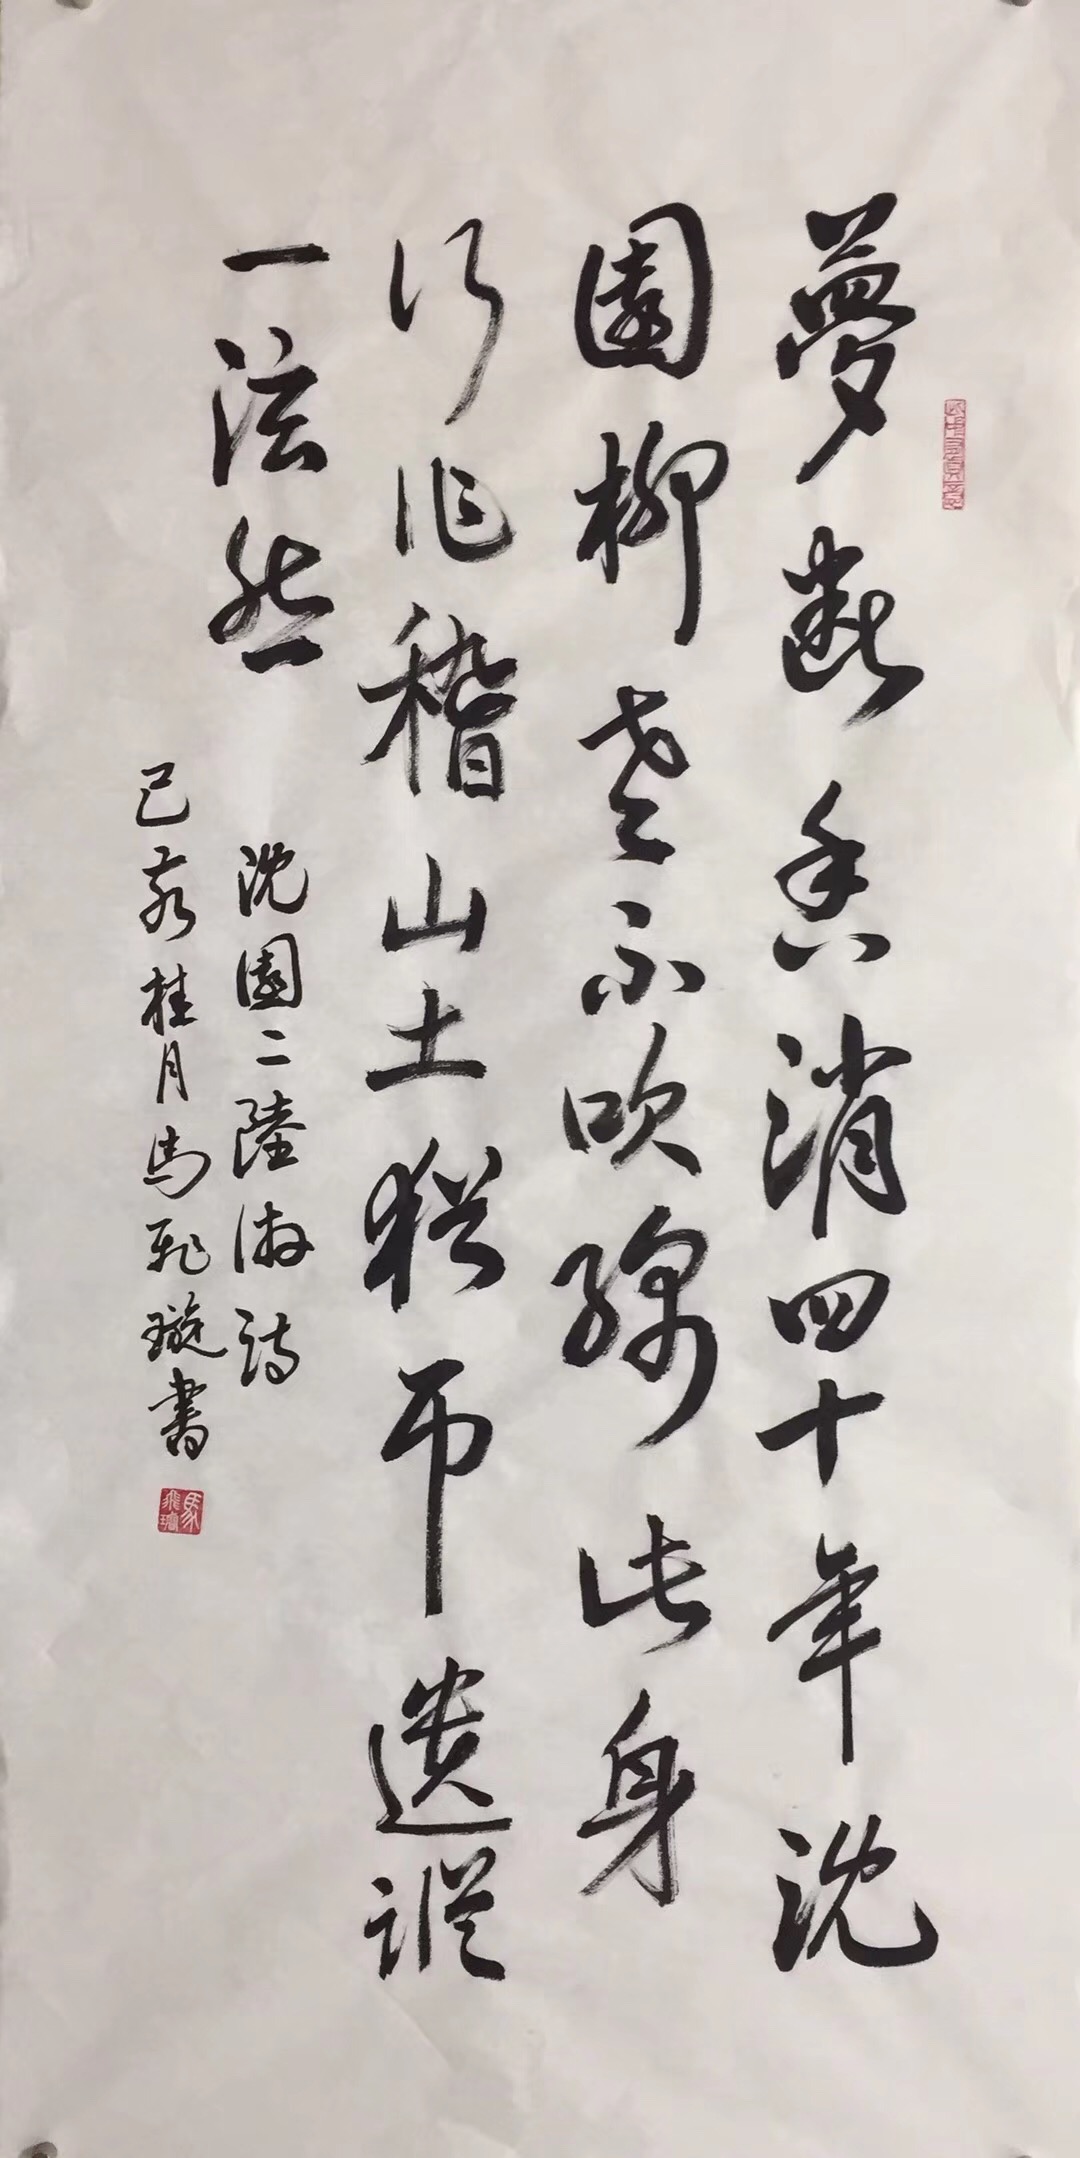 夢斷香消四十年沈
園柳老不吹綿此身
行作稽山土猶吊遺蹤
一泫然
沈園二陸游詩
己亥桂月馬飛璇書